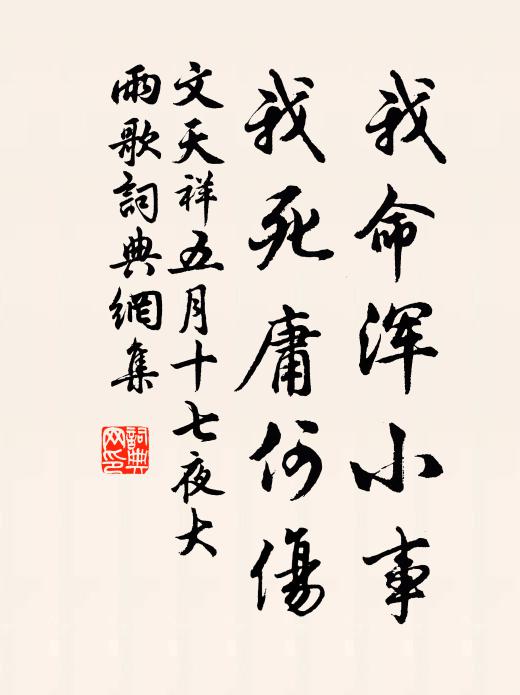 我命浑小事
我死庸何傷
文天祥五月十七夜大
雨歌詞典網集
詞典
网印